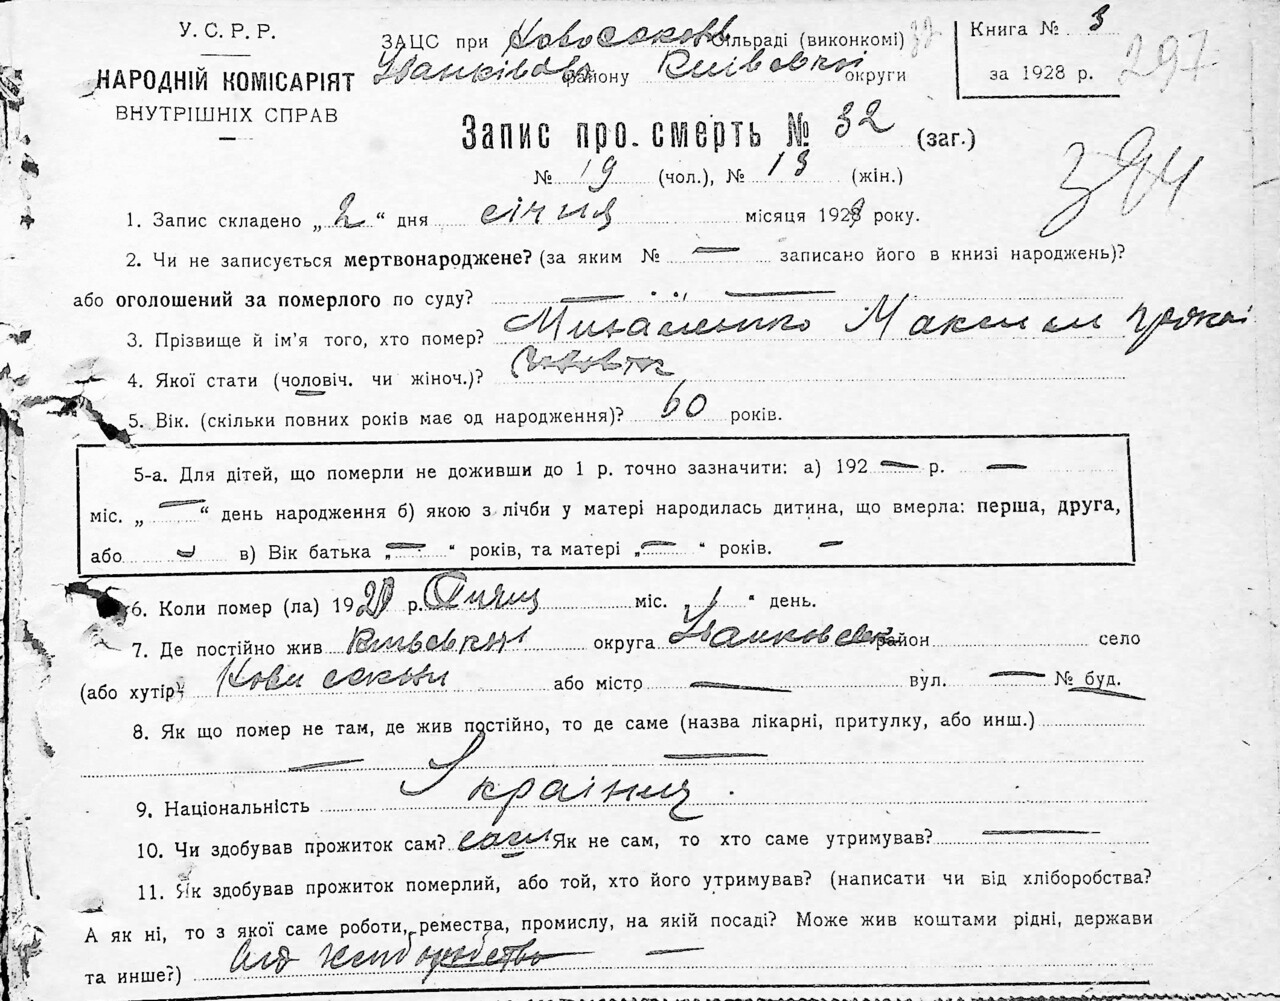 У. С. Р. Р.
НАРОДНІЙ КОМІСАРІЯТ
ВНУТРІШНІХ СПРАВ
ЗАЦС при Сільраді (виконкомі)
району округи
Книга № 3
за 1928 р.
297
Запис про смерть № 32 (заг.)
394
№ 19 (чол.), № 13 (жін.)
1. Запис складено „ 2 “ дня січня місяця 192 року.
2. Чи не записується мертвонароджене? (за яким № — записано його в книзі народжень)?
або оголошений за померлого по суду? — —
3. Прізвище й ім'я того, хто помер? Максим
4. Якої стати (чоловіч. чи жіноч.)?
5. Вік. (скільки повних років має од народження)? 60 років.
5-а. Для дітей, що померли не доживши до 1 р. точно зазначити: а) 192 — р. —
міс. „ — “ день народження б) якою з лічби у матері народилась дитина, що вмерла: перша, друга,
або в) Вік батька „ — “ років, та матері „ — “ років. —
6. Коли помер (ла) 192 р. міс. „ 1 “ день.
7. Де постійно жив округа район село
(або хутір) або місто — вул. — № буд.
8. Як що помер не там, де жив постійно, то де саме (назва лікарні, притулку, або инш.)
— —
9. Національність
10. Чи здобував прожиток сам? сам Як не сам, то хто саме утримував? —
11. Як здобував прожиток померлий, або той, хто його утримував? (написати чи від хліборобства?
А як ні, то з якої саме роботи, ремества, промислу, на якій посаді? Може жив коштами рідні, держави
та инше?) —